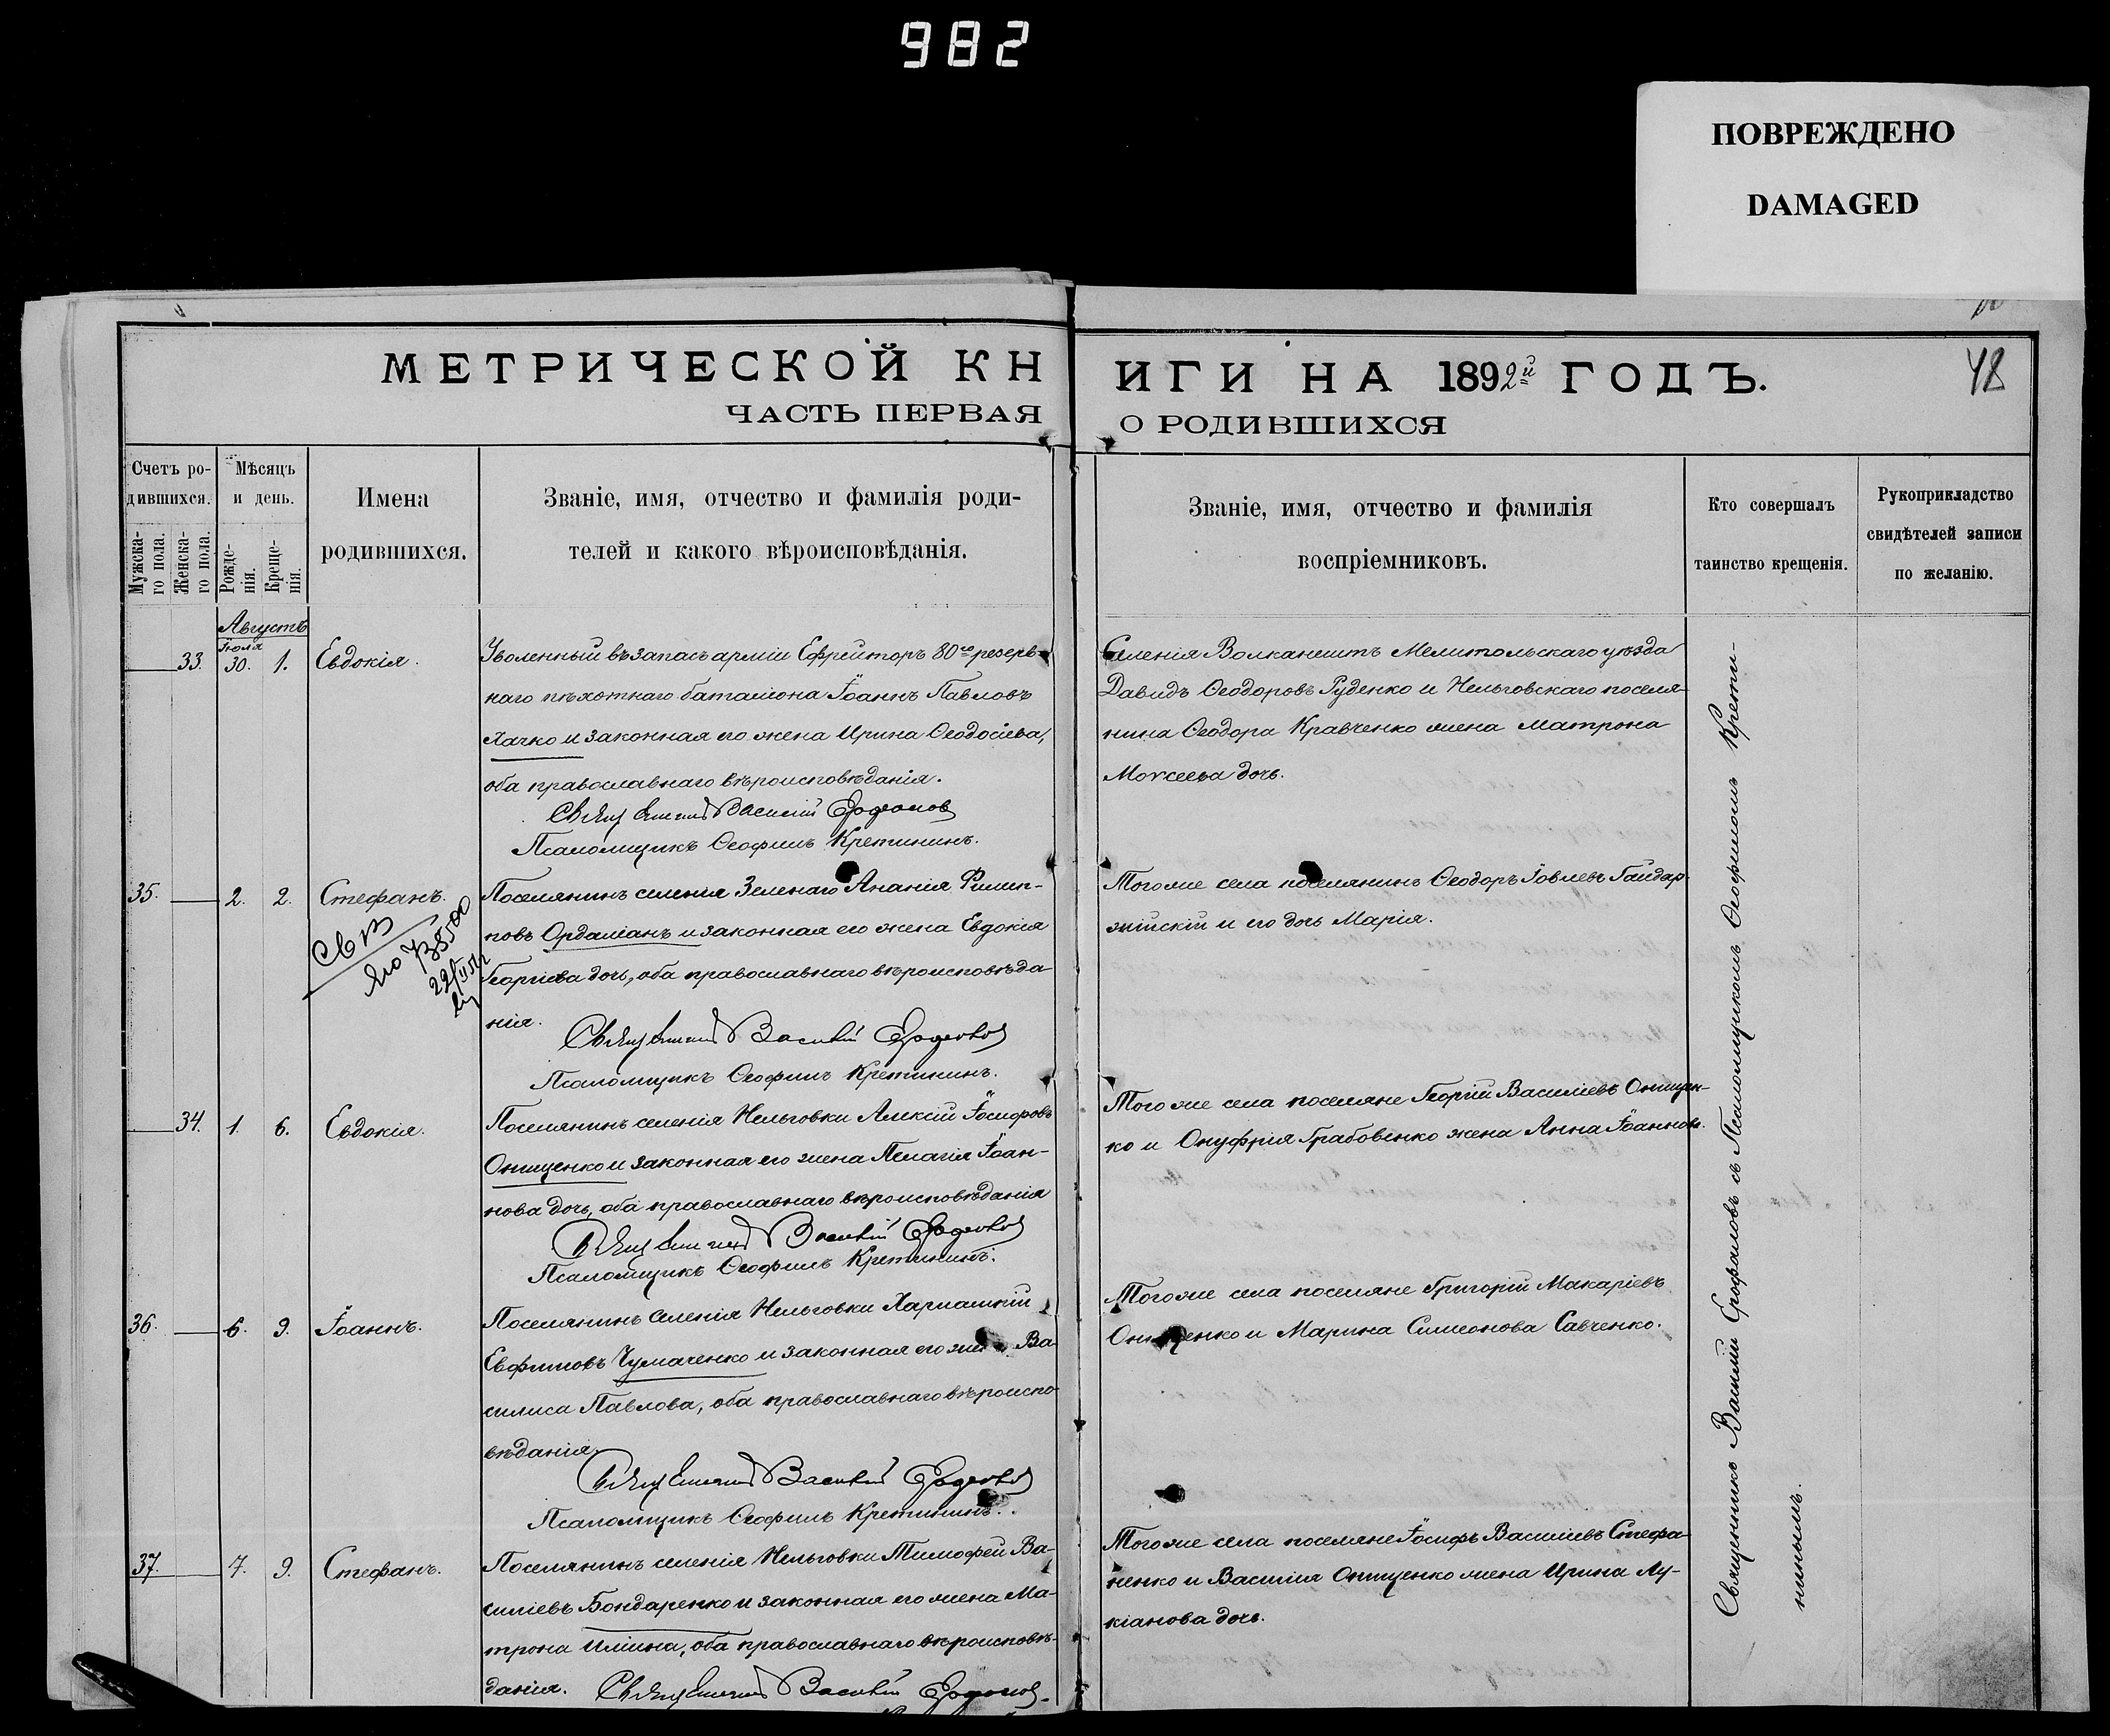 982
ПОВРЕЖДЕНО
DAMAGED
МЕТРИЧЕСКОЙ КНИГИ НА 1892й ГОДЪ.
48
ЧАСТЬ ПЕРВАЯ О РОДИВШИХСЯ
Счетъ ро-
дившихся.
Мужска-
го пола.
Женска-
го пола.
Мѣсяцъ
и день.
Рожде-
нія.
Креще-
нія.
Имена
родившихся.
Званіе, имя, отчество и фамилія роди-
телей и какого вѣроисповѣданія.
Званіе, имя, отчество и фамилія
воспріемниковъ.
Кто совершалъ
таинство крещенія.
Рукоприкладство
свидѣтелей записи
по желанію.
Августъ
Іюля
33. 30. 1. Евдокія.
Уволенный въ запасъ арміи Ефрейторъ 80го резерв-
наго пѣхотнаго баталіона Іоаннъ Павловъ
Хачко и законная его жена Ирина Ѳеодосіева,
оба православнаго вѣроисповѣданія.
Священникъ Василій
Псаломщикъ Ѳеофилъ Кретининъ.
Селенія Волканештъ Мелитольскаго уѣзда
Давидъ Ѳеодоровъ Руденко и Нельговскаго поселя-
нина Ѳеодора Кравченко жена Матрона
Моѵсеева дочь.
35. 2. 2. Стефанъ.
Поселянинъ селенія Зеленаго Ананія Филип-
повъ Ордаліанъ и законная его жена Евдокія
Георгіева дочь, оба православнаго вѣроисповѣда-
нія.
Священникъ Василій
Псаломщикъ Ѳеофилъ Кретининъ.
Тогоже села поселянинъ Ѳеодоръ Іовлевъ Гайдар-
жійскій и его дочь Марія.
34. 1. 6. Евдокія.
Поселянинъ селенія Нельговки Алексій Іосифовъ
Онищенко и законная его жена Пелагія Іоан-
нова дочь, оба православнаго вѣроисповѣданія
Священникъ Василій
Псаломщикъ Ѳеофилъ Кретининъ.
Тогоже села поселяне Георгій Василіевъ Онищен-
ко и Онуфрія Грабовенко жена Анна Іоаннова.
36. 6. 9. Іоаннъ.
Поселянинъ селенія Нельговки Харлампій
Евфимовъ Чумаченко и законная его жена Ва-
силиса Павлова, оба православнаго вѣроиспо-
вѣданія.
Священникъ Василій
Псаломщикъ Ѳеофилъ Кретининъ.
Тогоже села поселяне Григорій Макаріевъ
Онищенко и Марина Симеонова Савченко.
37. 7. 9. Стефанъ.
Поселянинъ селенія Нельговки Тимофей Ва-
силіевъ Бондаренко и законная его жена Ма-
трона Иліина, оба православнаго вѣроисповѣ-
данія.
Священникъ Василій
Тогоже села поселяне Іосифъ Василіевъ Стефа-
ненко и Василія Онищенко жена Ирина Лу-
кіанова дочь.
Священникъ Василій съ Псаломщикомъ Ѳеофиломъ Крети-
нинымъ.